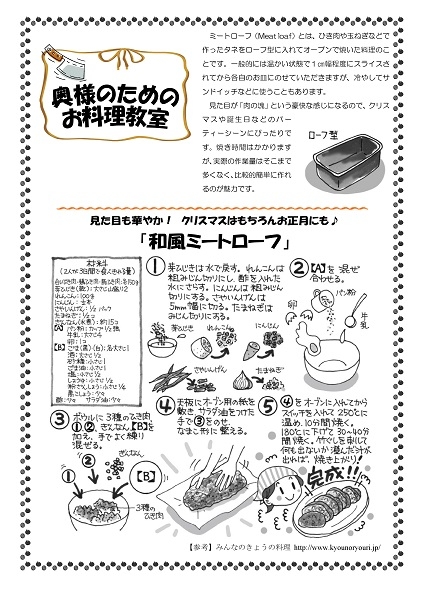 奥様のための
お料理教室
ミートローフ(Meat loaf)とは、ひき肉や玉ねぎなどで
作ったタネをローフ型に入れてオーブンで焼いた料理のこ
とです。一般的には温かい状態で1㎝幅程度にスライスさ
れてから各自のお皿にのせていただきますが、冷やしてサ
ンドイッチなどに使うこともあります。
見た目が「肉の塊」という豪快な感じになるので、クリス
マスや誕生日などのパー
ティーシーンにぴったりで
す。焼き時間はかかります
が、実際の作業量はそこまで
多くなく、比較的簡単に作れ
るのが魅力です。
ローフ型
見た目も華やか! クリスマスはもちろんお正月にも♪
「和風ミートローフ」
材料
(2人が3日間で食べきれる量)
れんこん:100g
① 芽ひじきは水で戻す。れんこんは
粗みじん切りにし、酢を入れた
水にさらす。にんじんは粗みじん
切りにする。さやいんげんは
5mm幅に切る。たまねぎは
みじん切りにする。
芽ひじき
れんこん
にんじん
さやいんげん
たまねぎ
② 【A】を混ぜ
合わせる。
パン粉
卵
牛乳
③ ボウルに3種のひき肉
①②、ぎんなん【B】を
加え、手でよく練り
混ぜる。
①
②
ぎんなん
【B】
3種の
ひき肉
④ 天板にオーブン用の紙を
敷き、サラダ油をつけた
手で③をのせ、
なまこ形に整える。
⑤ ④をオーブンに入れてから
スイッチを入れて250℃に
温め、10分間焼く。
180℃に下げて30~40分
間焼く。竹ぐしを刺して
何も出ないか澄んだ汁が
出れば、焼き上がり!
完成!!
【参考】みんなのきょうの料理 http://www.kyounoryouri.jp/